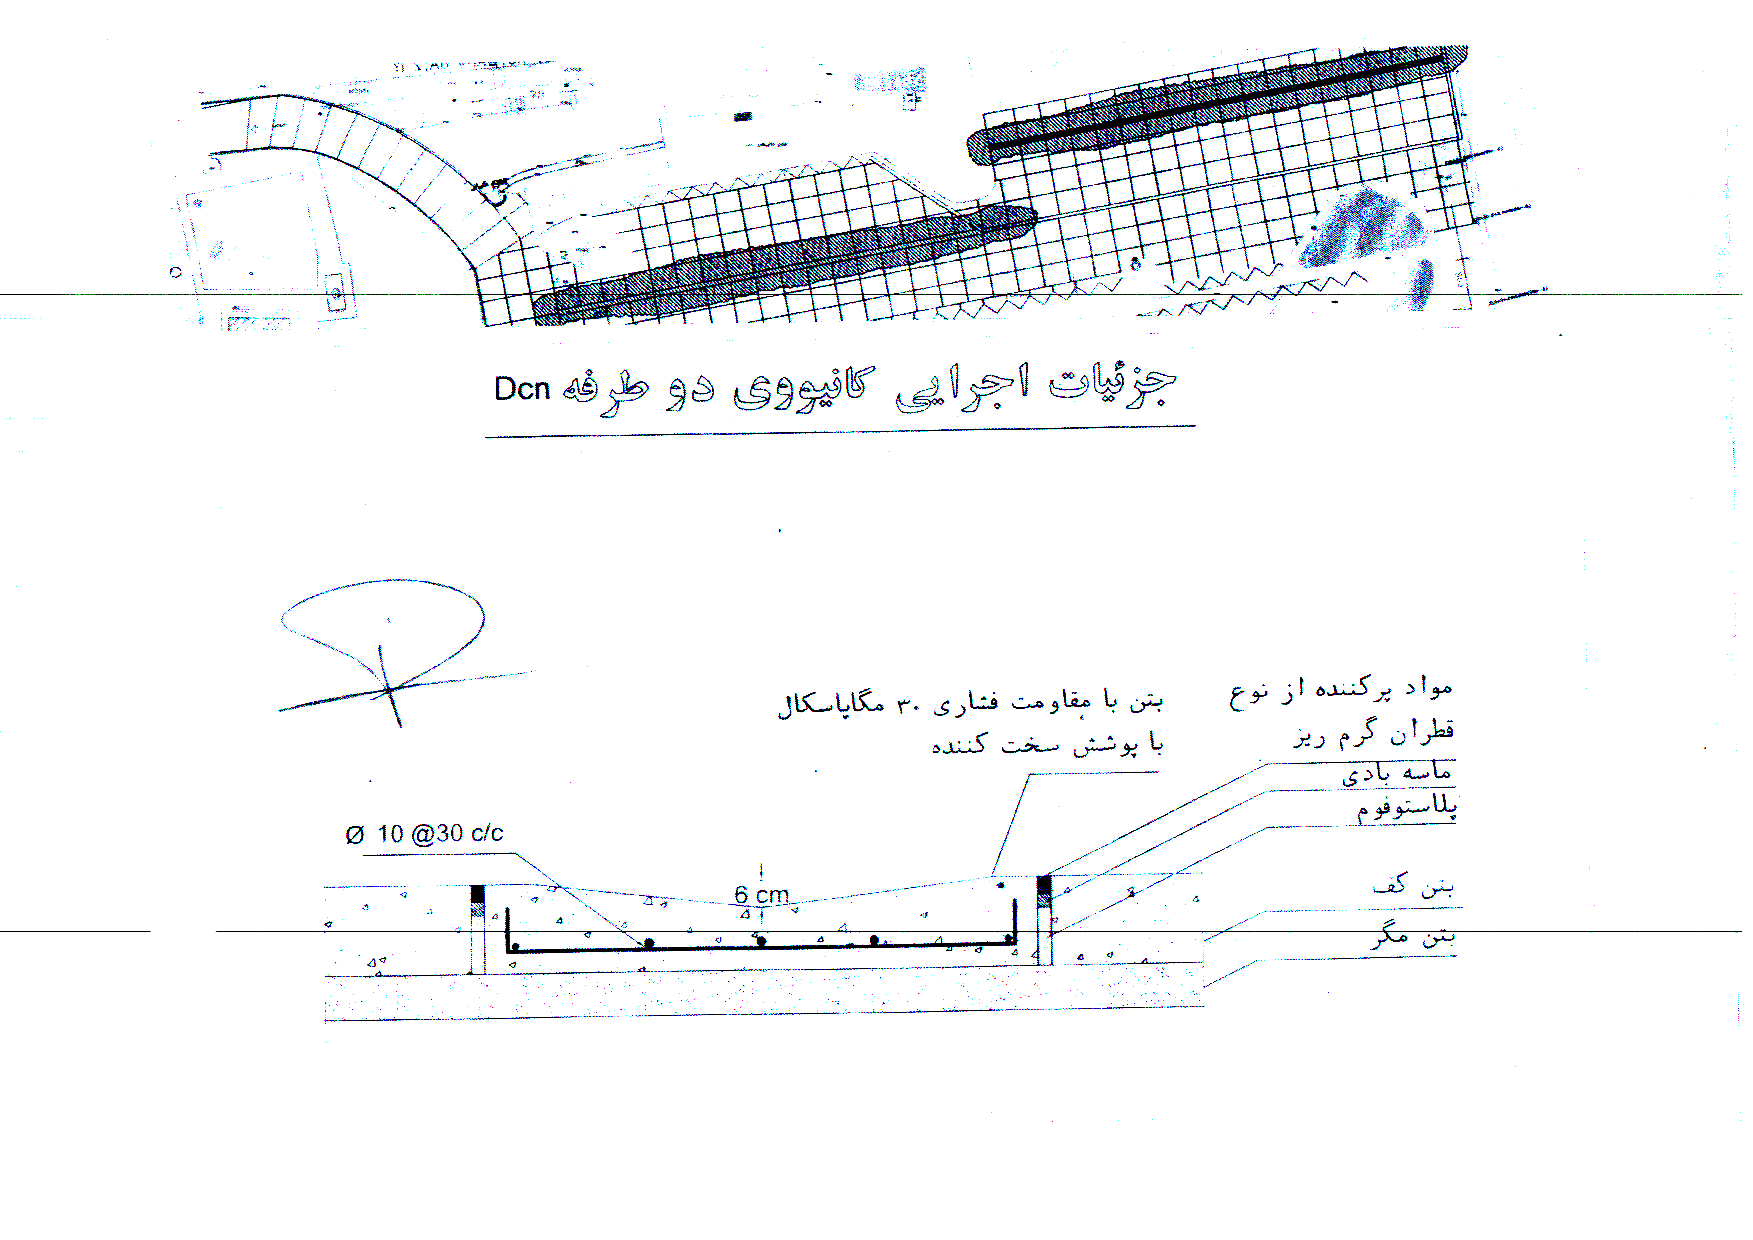 جزئیات اجرایی کانیووی دو طرفه Dcn
مواد پرکننده از نوع
قطران گرم ریز
ماسه بادی
پلاستوفوم
بتن با مقاومت فشاری ۳۰ مگاپاسکال
با پوشش سخت کننده
Ø 10 @30 c/c
6 cm
بتن کف
بتن مگر